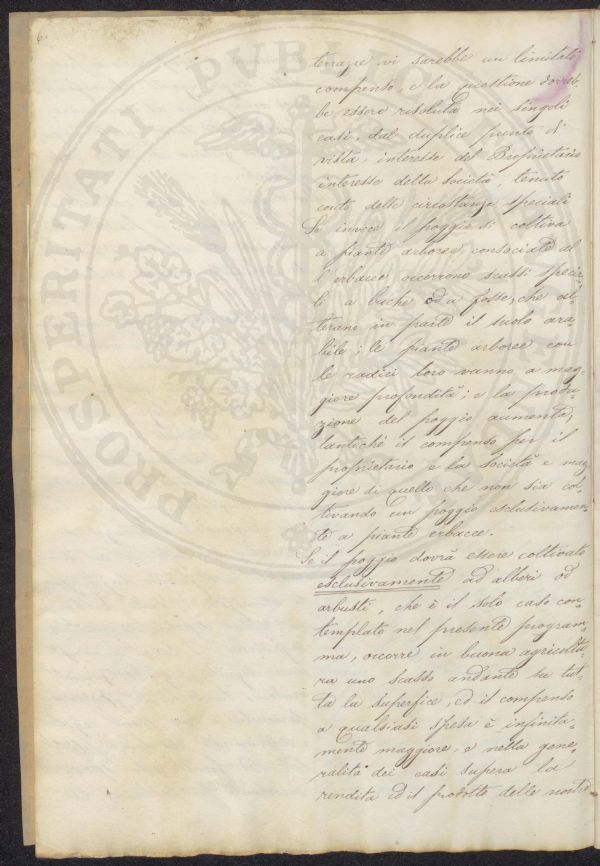 6.
terrazze vi sarebbe un limitato
compenso, e la questione dovreb-
be essere risoluta nei singoli
casi, dal duplice punto di
vista, interesse del Proprietario
interesse della Società, tenuto
conto delle circostanze speciali
Se invece il poggio si coltiva
a piante arboree, consociate al
l'erbacee occorrono scassi specia-
li a buche od a fosse, che al-
terano in parte il suolo ara-
bile; le piante arboree con
le radici loro vanno a mag-
giore profondità; e la produ-
zione del poggio aumenta,
tantiché il compenso per il
proprietario e la Società è mag
giore di quello che non sia col-
tivando un poggio esclusivamen-
te a piante erbacee.
Se il poggio dovrà essere coltivato
esclusivamente ad alberi od
arbusti, che è il solo caso con-
templato nel presente program-
ma, occorre in buona agricoltu-
ra uno scasso andante su tut-
ta la superfice, ed il compenso
a qualsiasi spesa è infinita-
mente maggiore, e nella gene-
ralità dei casi supera la
rendita ed il prodotto delle nostre
PROSPERITATI PVBLICAE